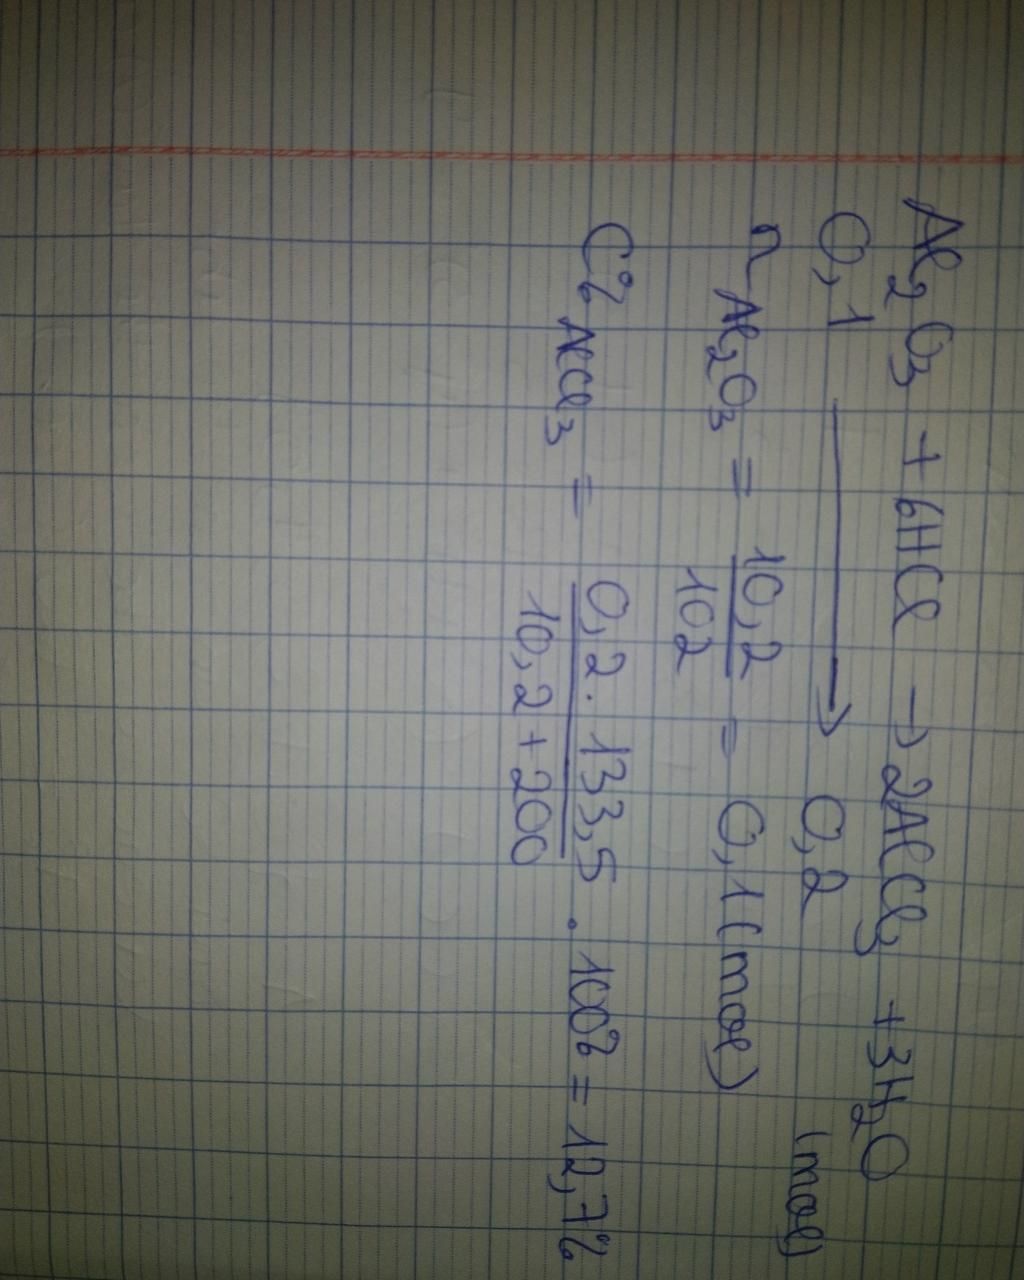 Al₂O₃ + 6HCl → 2AlCl₃ + 3H₂O
0,1 → 0,2 (mol)
n Al₂O₃ = 10,2 / 102 = 0,1 (mol)
C% AlCl₃ = 0,2 . 133,5 / 10,2 + 200 . 100% = 12,7%